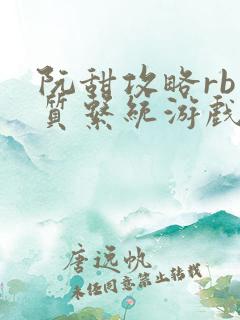 阮甜攻略rb
质系统游戏
唐远帆
未经同意禁止转载